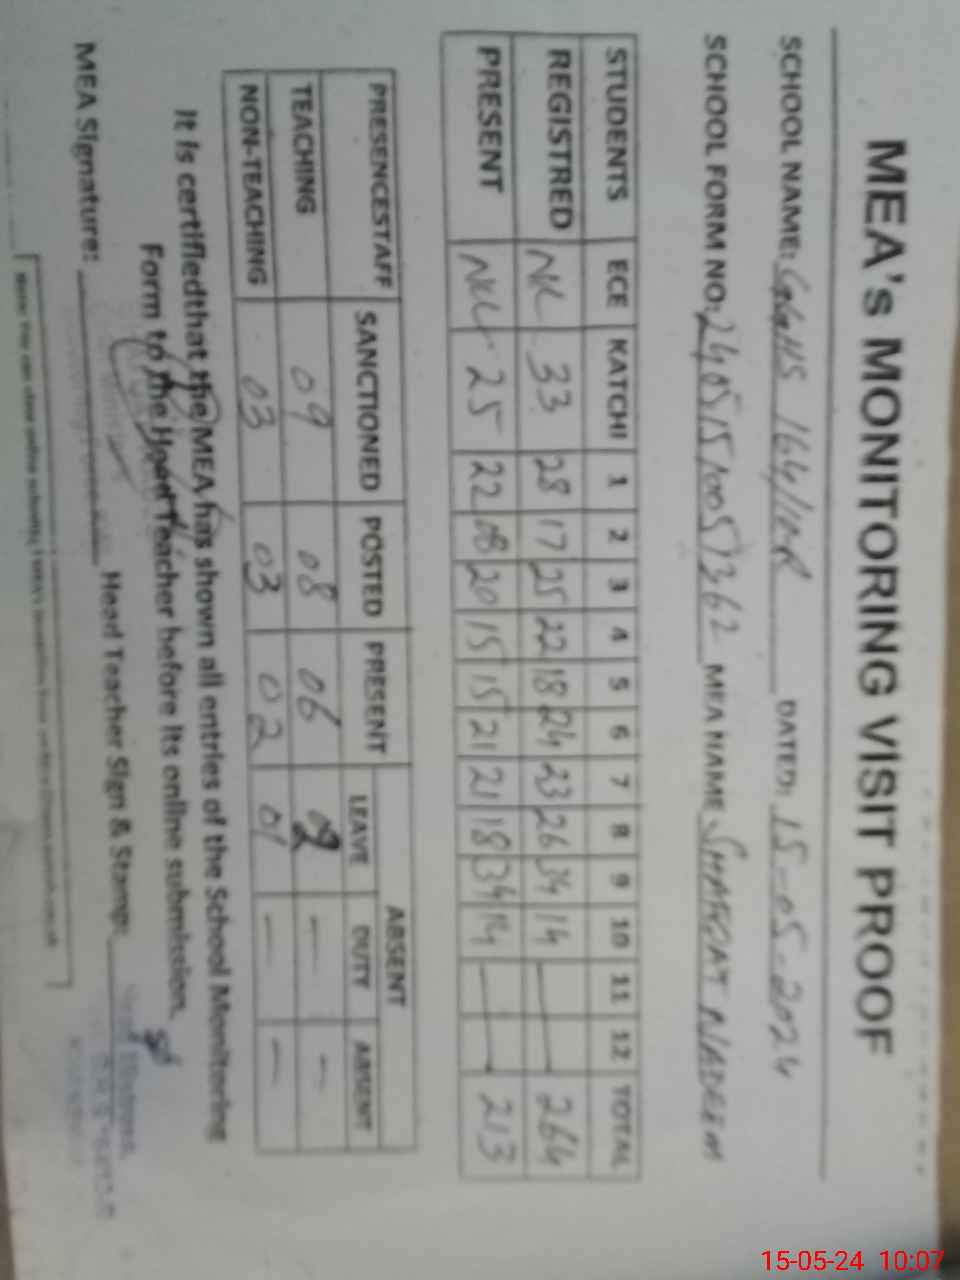 MEA's MONITORING VISIT PROOF
SCHOOL NAME: GGHS 164/10R DATED: 15-05-2024
SCHOOL FORM NO: MEA NAME SHAFQAT NADEEM
STUDENTS ECE KATCHI 1 2 3 4 5 6 7 8 9 10 11 12 TOTAL
REGISTRED NIL 33 28 17 25 22 18 24 23 26 34 14 — 264
PRESENT NIL 25 22 08 20 15 15 21 21 18 34 14 — 213
PRESENCESTAFF SANCTIONED POSTED PRESENT ABSENT
LEAVE DUTY ABSENT
TEACHING 09 08 06 02 — —
NON-TEACHING 03 03 02 01 — —
It is certifiedthat the MEA has shown all entries of the School Monitoring
Form to the Head Teacher before its online submission.
MEA Signature: Head Teacher Sign & Stamp:
15-05-24 10:07